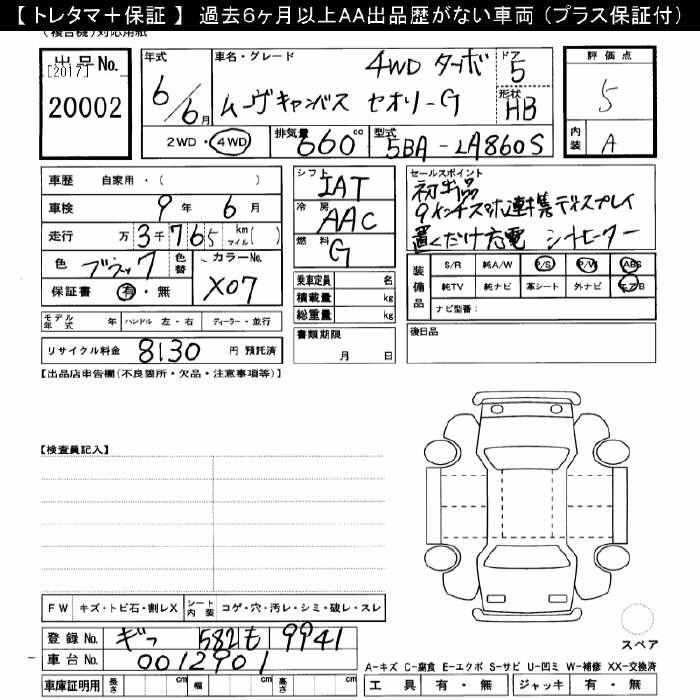 【 トレタマ＋保証 】 過去6ヶ月以上AA出品歴がない車両（プラス保証付）
(複合機)対応用紙
出品No.
[2017]
20002
年式
6/6月
車名・グレード
4WD ターボ
ムーヴキャンバス セオリーG
ドア
5
形状
HB
評価点
5
内装
A
2WD・4WD
排気量
660 cc
型式
5BA-LA860S
車歴 自家用・( )
車検 9年 6月
走行 万 3千765 km マイル( )
色 ブラック 色替
カラーNo.
X07
保証書 有・無
モデル年式 年 ハンドル 左・右 ディーラー・並行
リサイクル料金 8130 円 預託済
シフト
IAT
冷房
AAC
燃料
G
乗車定員 名
積載量 kg
総重量 kg
書類期限
月 日
セールスポイント
初出品
9インチスマホ連携ディスプレイ
置くだけ充電 シートヒーター
装備品
S/R 純A/W P/S P/W ABS
純TV 純ナビ 革シート 外ナビ エアB
ナビ型番：
後日品
【出品店申告欄(不良箇所・欠品・注意事項等)】
【検査員記入】
FW キズ・トビ石・割レX シート内装 コゲ・穴・汚レ・シミ・破レ・スレ
登録No. 582 も 9941
車台No. 0012901
車庫証明用 長さ cm 幅 cm 高さ cm
スペア
A-キズ C-腐食 E-エクボ S-サビ U-凹ミ W-補修 XX-交換済
工具 有・無 ジャッキ 有・無